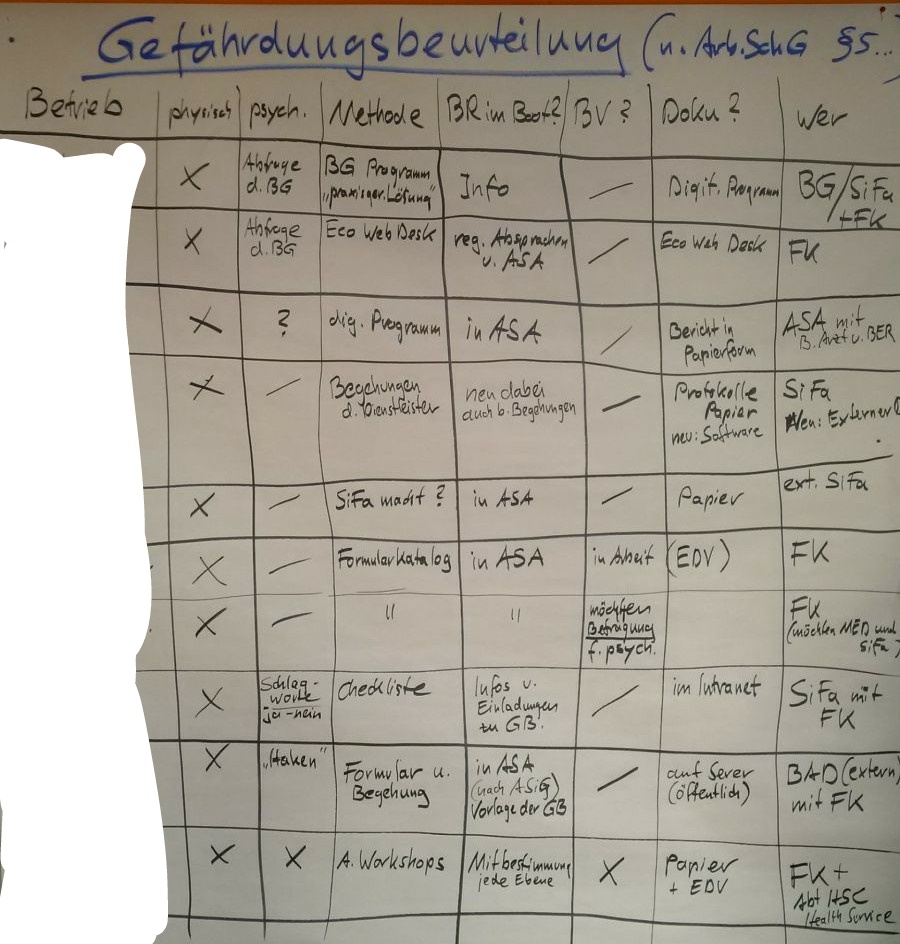 Gefährdungsbeurteilung (n. Arb.SchG §5...)
Betrieb physisch psych. Methode BR im Boot? BV? Doku? wer
X Abfrage d. BG BG Programm „praxisger. Lösung" Info — Digit. Programm BG/SiFa +FK
X Abfrage d. BG Eco Web Desk reg. Absprachen u. ASA — Eco Web Desk FK
X ? dig. Programm in ASA — Bericht in Papierform ASA mit B. Arzt u. BER
X — Begehungen d. Dienstleister neu dabei auch b. Begehungen — Protokolle Papier neu: Software SiFa Neu: Externer
X — SiFa macht? in ASA — Papier ext. SiFa
X — Formularkatalog in ASA in Arbeit (EDV) FK
X — " " möchten Befragung f. psych. FK (möchten MED und SiFa)
X Schlag-worte ja-nein Checkliste Infos u. Einladungen zu GB. — im Intranet SiFa mit FK
X „Haken" Formular u. Begehung in ASA (nach ASiG) Vorlage der GB — auf Sever (öffentlich) BAD (extern) mit FK
X X A. Workshops Mitbestimmung jede Ebene X Papier + EDV FK + Abt HSC Health Service